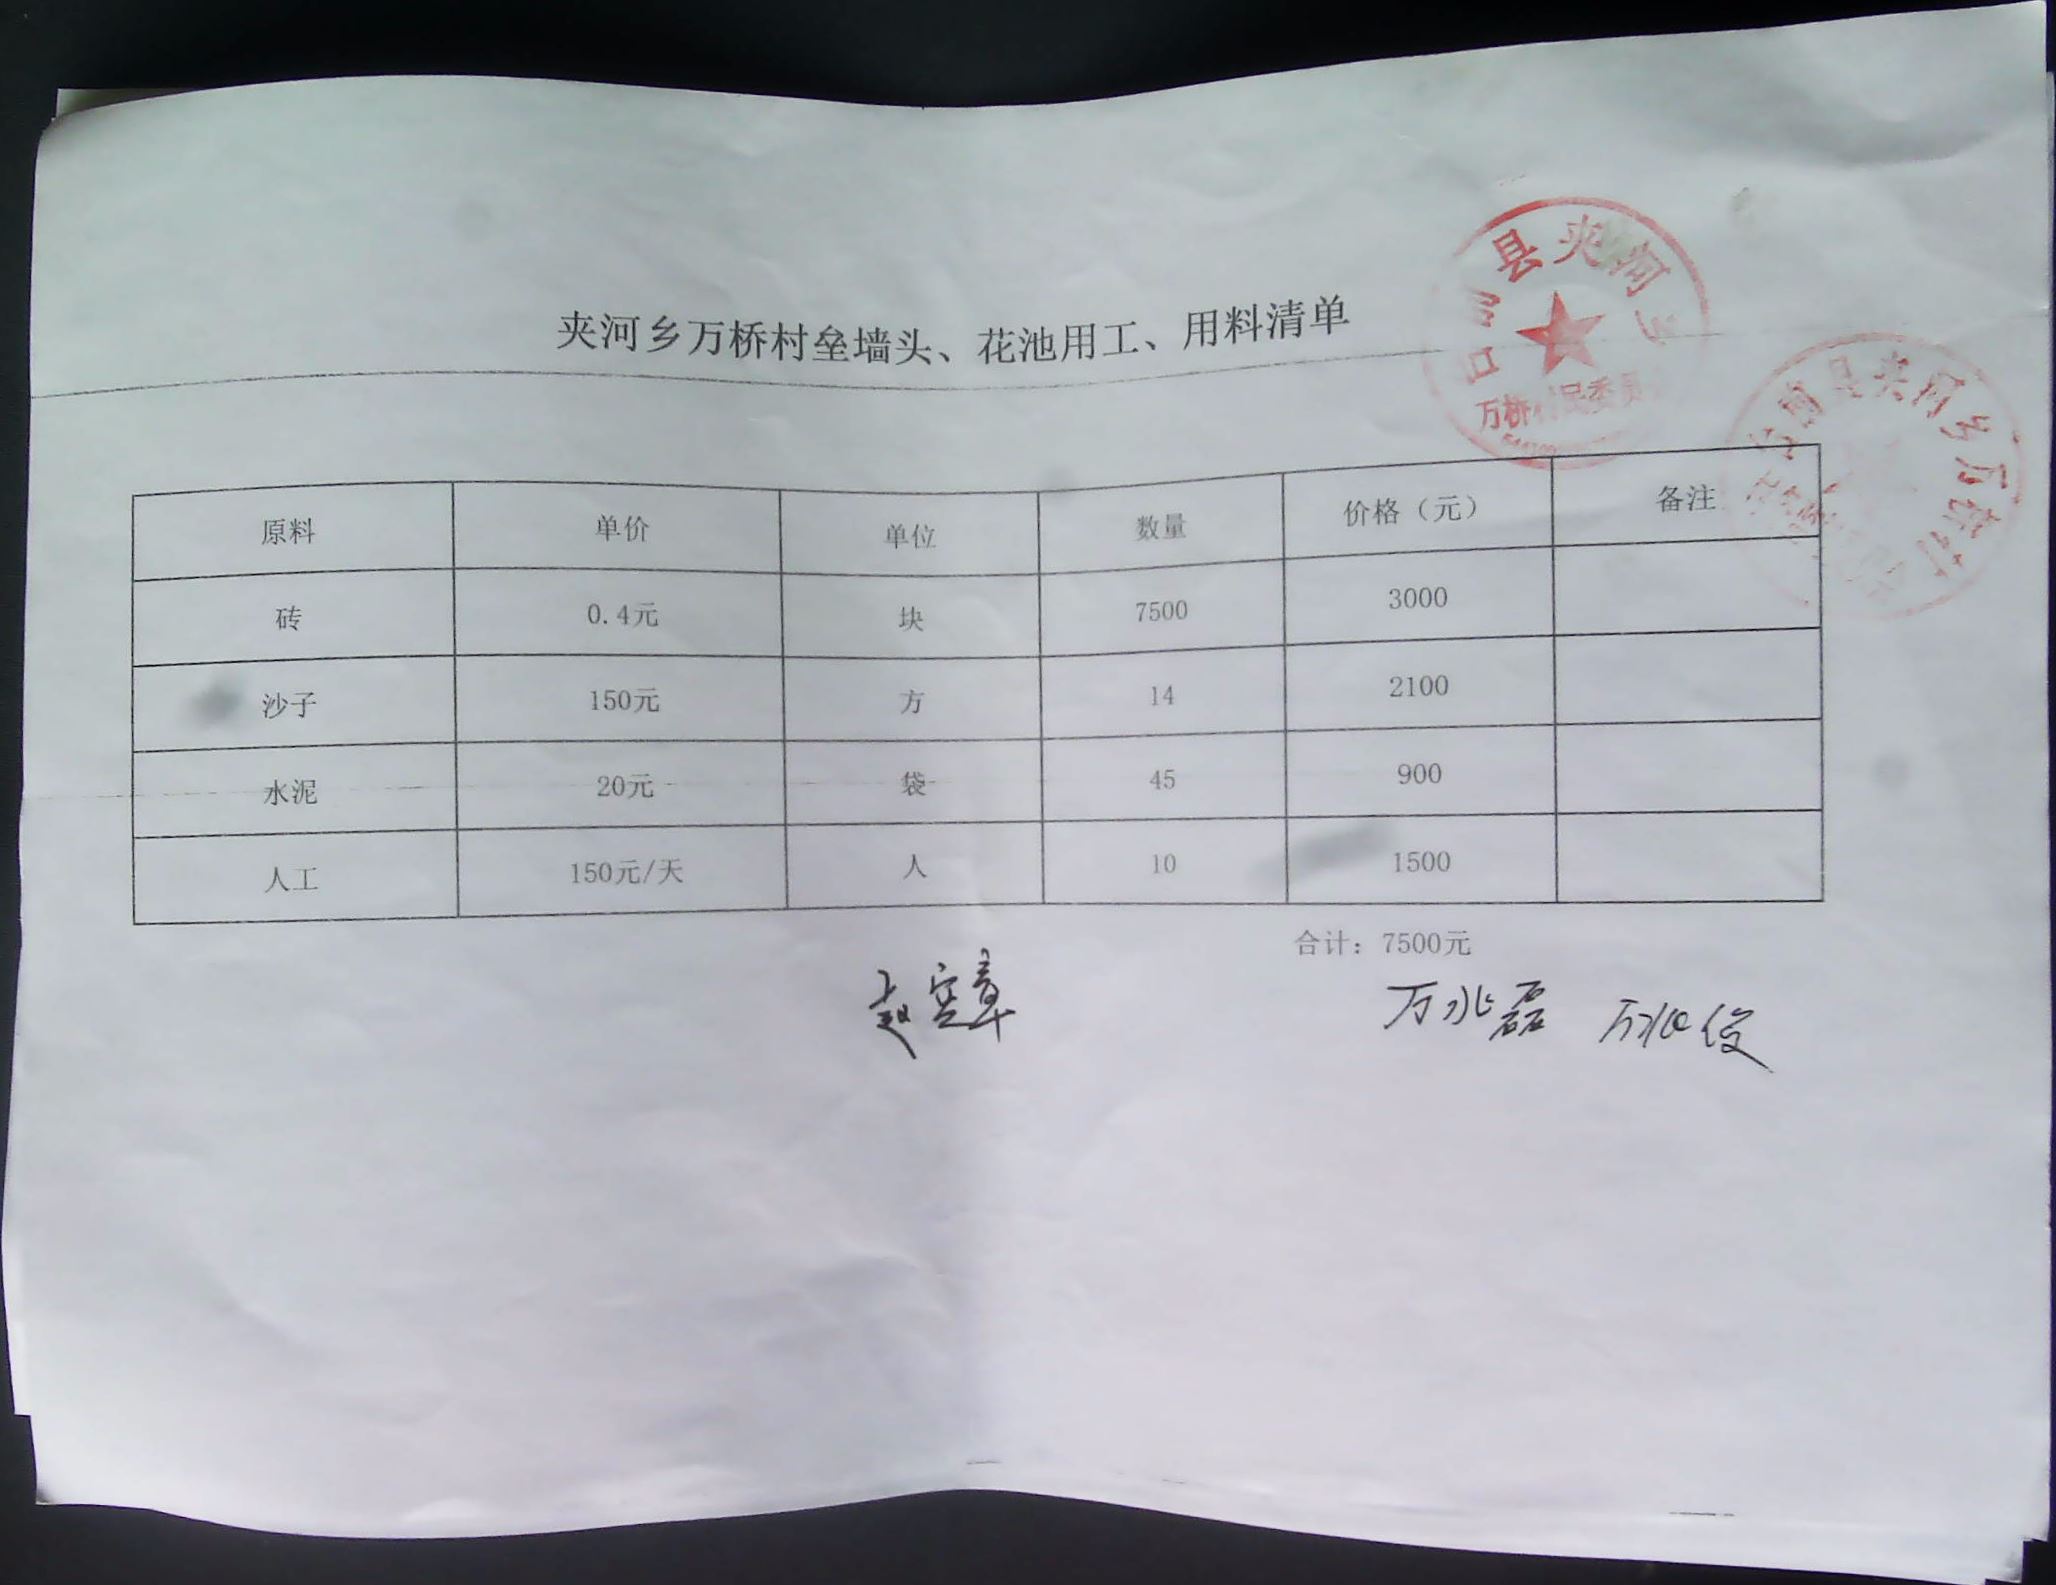 夹河乡万桥村垒墙头、花池用工、用料清单
县夹河乡
万桥村民委员
县夹河乡万桥村
原料 单价 单位 数量 价格（元） 备注
砖 0.4元 块 7500 3000
沙子 150元 方 14 2100
水泥 20元 袋 45 900
人工 150元/天 人 10 1500
合计：7500元
万兆磊 万兆俊